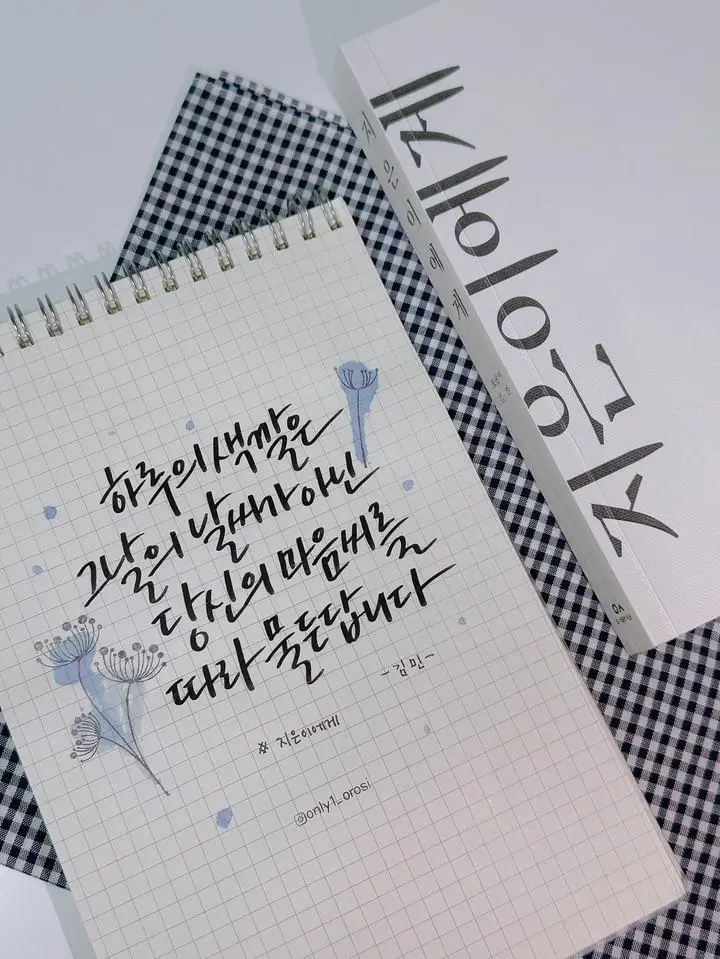 하루의 색깔은
그날의 날씨가 아닌
당신의 마음씨를
따라 물든답니다
-김민-
# 지은이에게
@only1_orosi
지은이에게
지은이에게